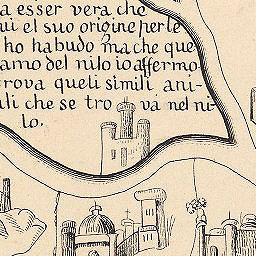 a esser vera che
ui el suo origine perle
ho habudo, ma che que
amo del nilo io affermo
rova queli simili ani-
ali che se tro va nel ni-
lo.